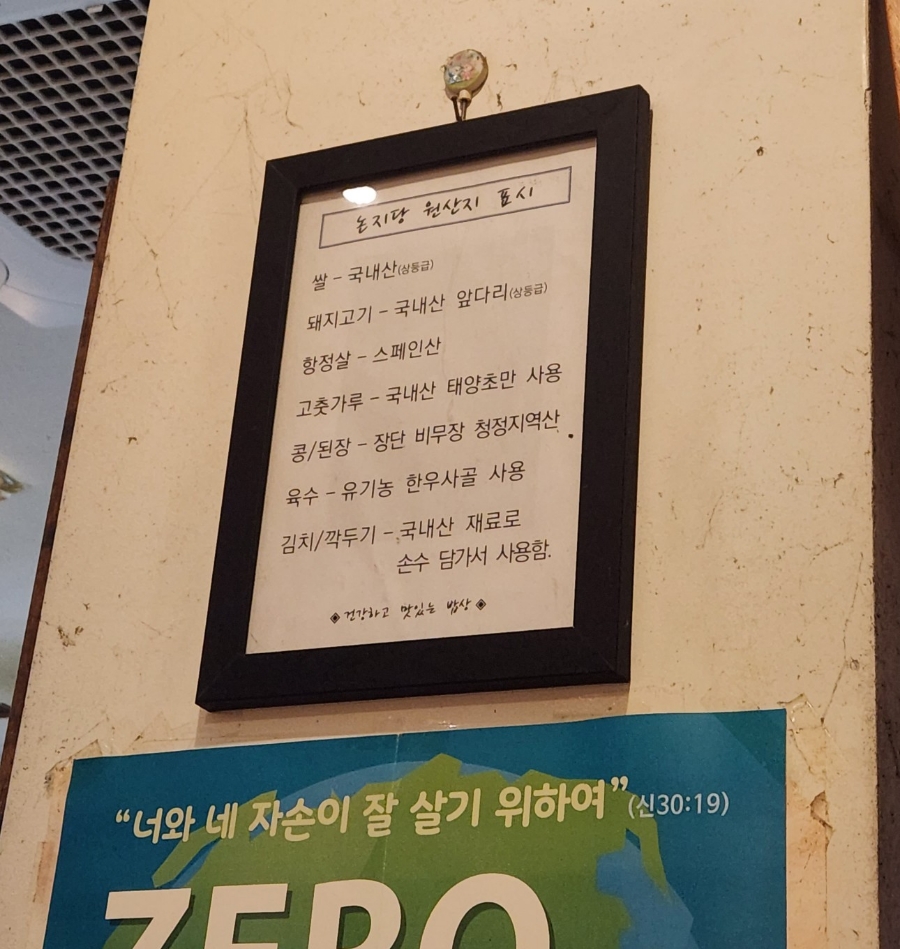 논지당 원산지 표시
쌀 - 국내산(상등급)
돼지고기 - 국내산 앞다리(상등급)
항정살 - 스페인산
고춧가루 - 국내산 태양초만 사용
콩/된장 - 장단 비무장 청정지역산
육수 - 유기농 한우사골 사용
김치/깍두기 - 국내산 재료로
손수 담가서 사용함.
◈건강하고 맛있는 밥상◈
“너와 네 자손이 잘 살기 위하여”(신30:19)
ZERO